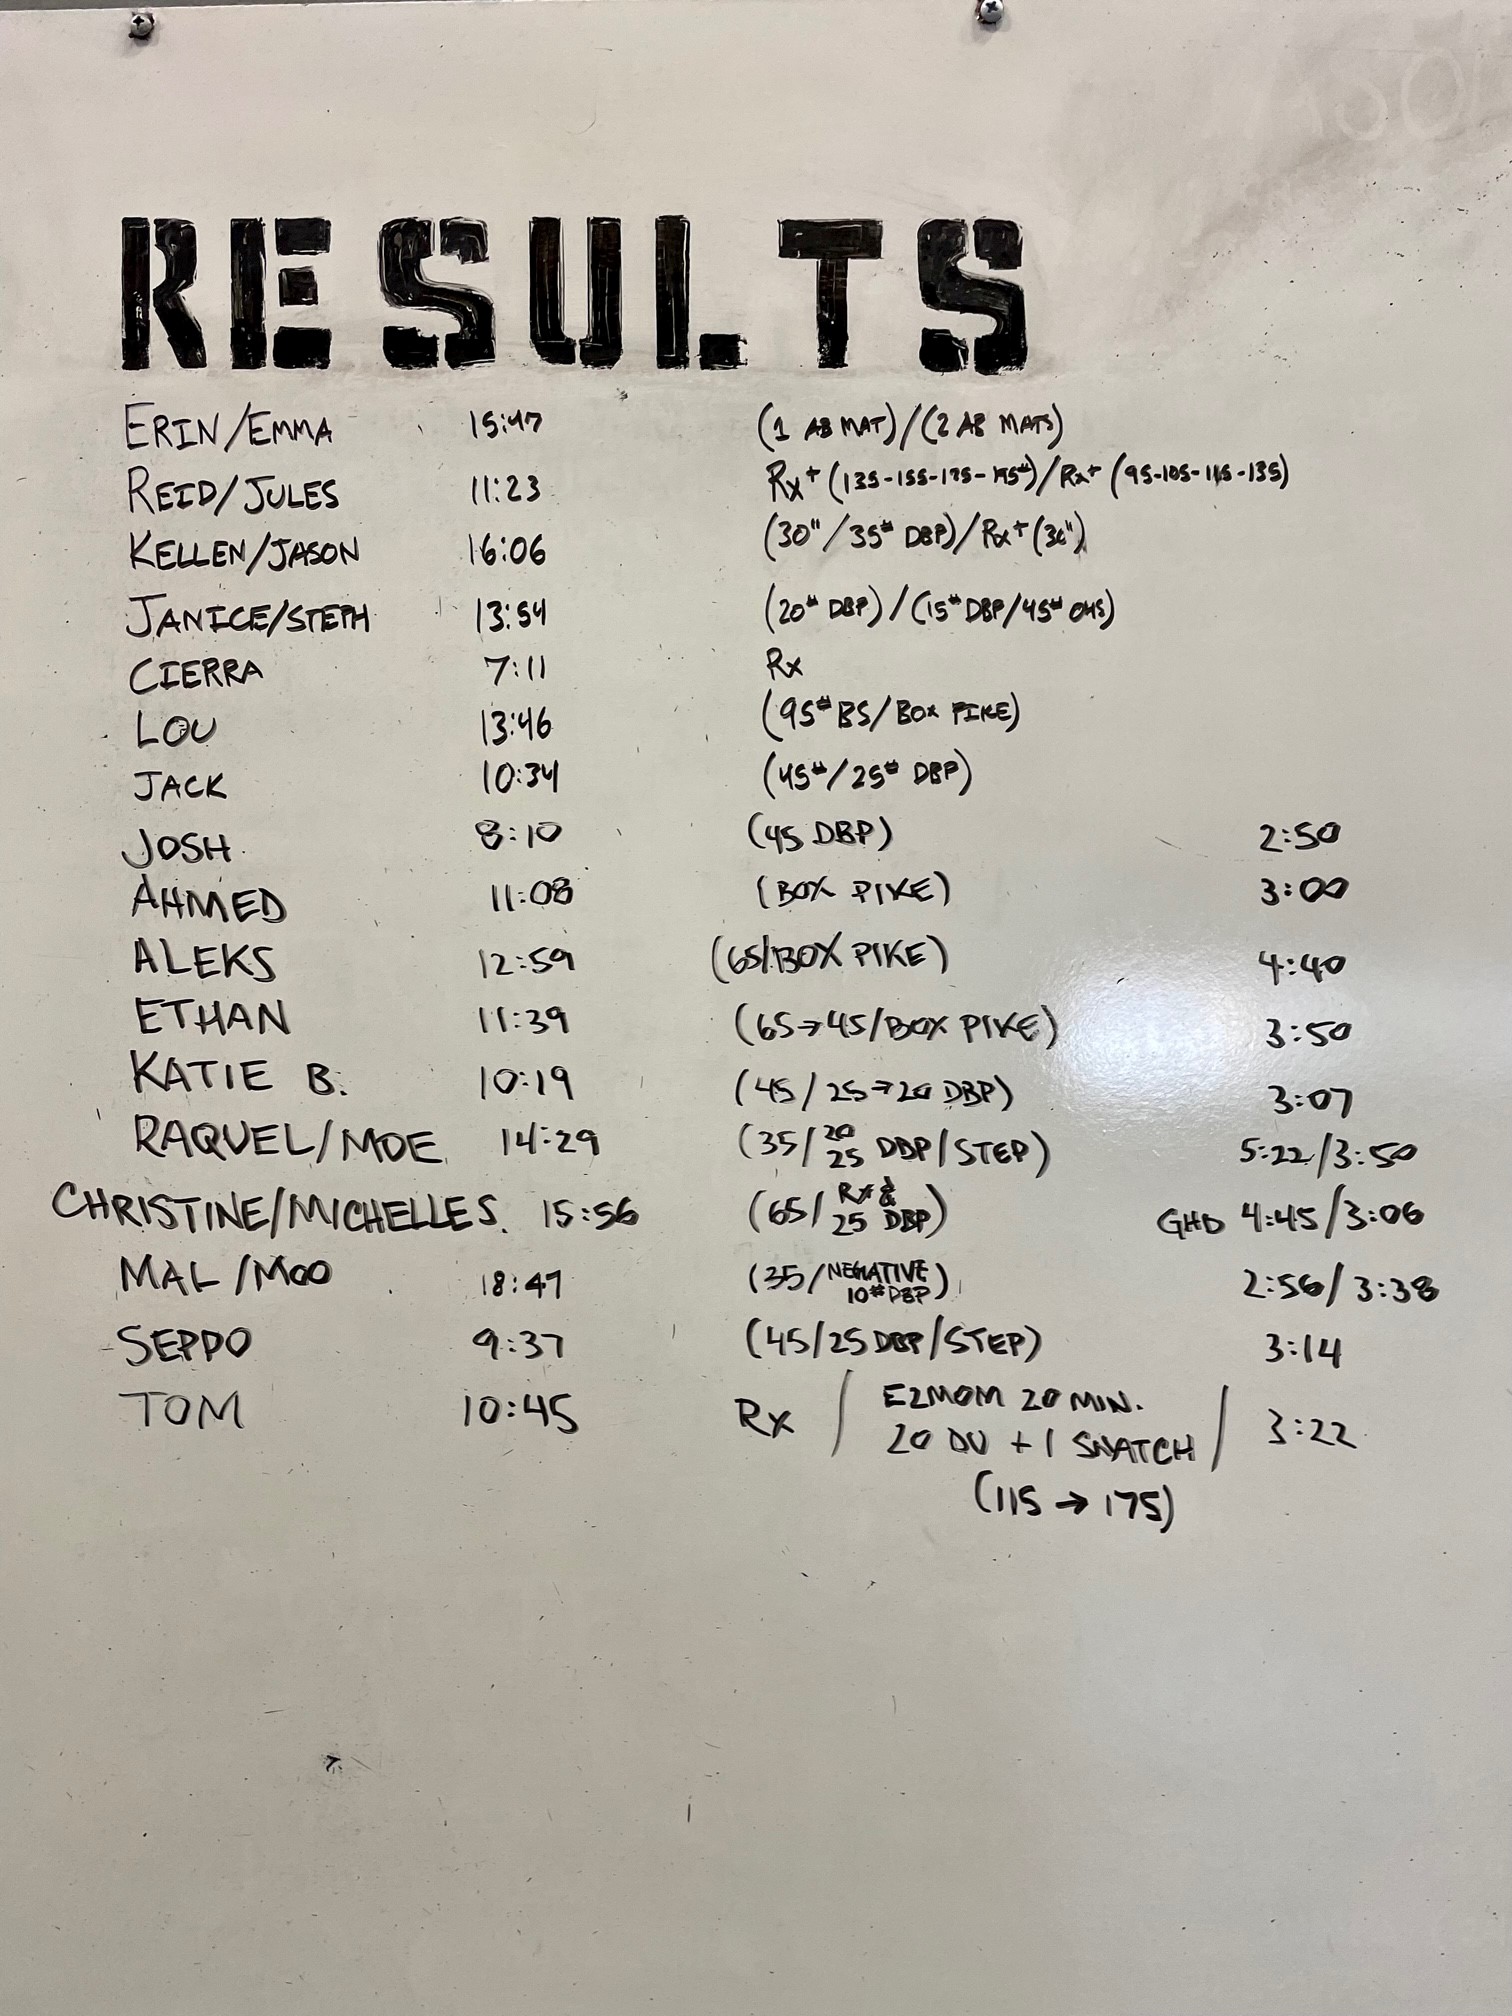 RESULTS
ERIN/EMMA 15:47 (1 AB MAT)/(2 AB MATS)
REID/JULES 11:23 Rx+ (135-155-175-195#)/Rx+ (95-105-115-135)
KELLEN/JASON 16:06 (30"/35# DBP)/Rx+ (30")
JANICE/STEPH 13:54 (20# DBP)/(15# DBP/45# OHS)
CIERRA 7:11 Rx
LOU 13:46 (95# BS/BOX PIKE)
JACK 10:34 (45#/25# DBP)
JOSH 8:10 (45 DBP) 2:50
AHMED 11:08 (BOX PIKE) 3:00
ALEKS 12:59 (65/BOX PIKE) 4:40
ETHAN 11:39 (65→45/BOX PIKE) 3:50
KATIE B. 10:19 (45/25→20 DBP) 3:07
RAQUEL/MOE 14:29 (35/20 25 DBP/STEP) 5:22/3:50
CHRISTINE/MICHELLE S. 15:56 (65/Rx & 25 DBP) GHD 4:45/3:06
MAL/MOO 18:47 (35/NEGATIVE 10# DBP) 2:56/3:38
SEPPO 9:37 (45/25 DBP/STEP) 3:14
TOM 10:45 Rx / E2MOM 20 MIN.
20 DU + 1 SNATCH / 3:22
(115→175)